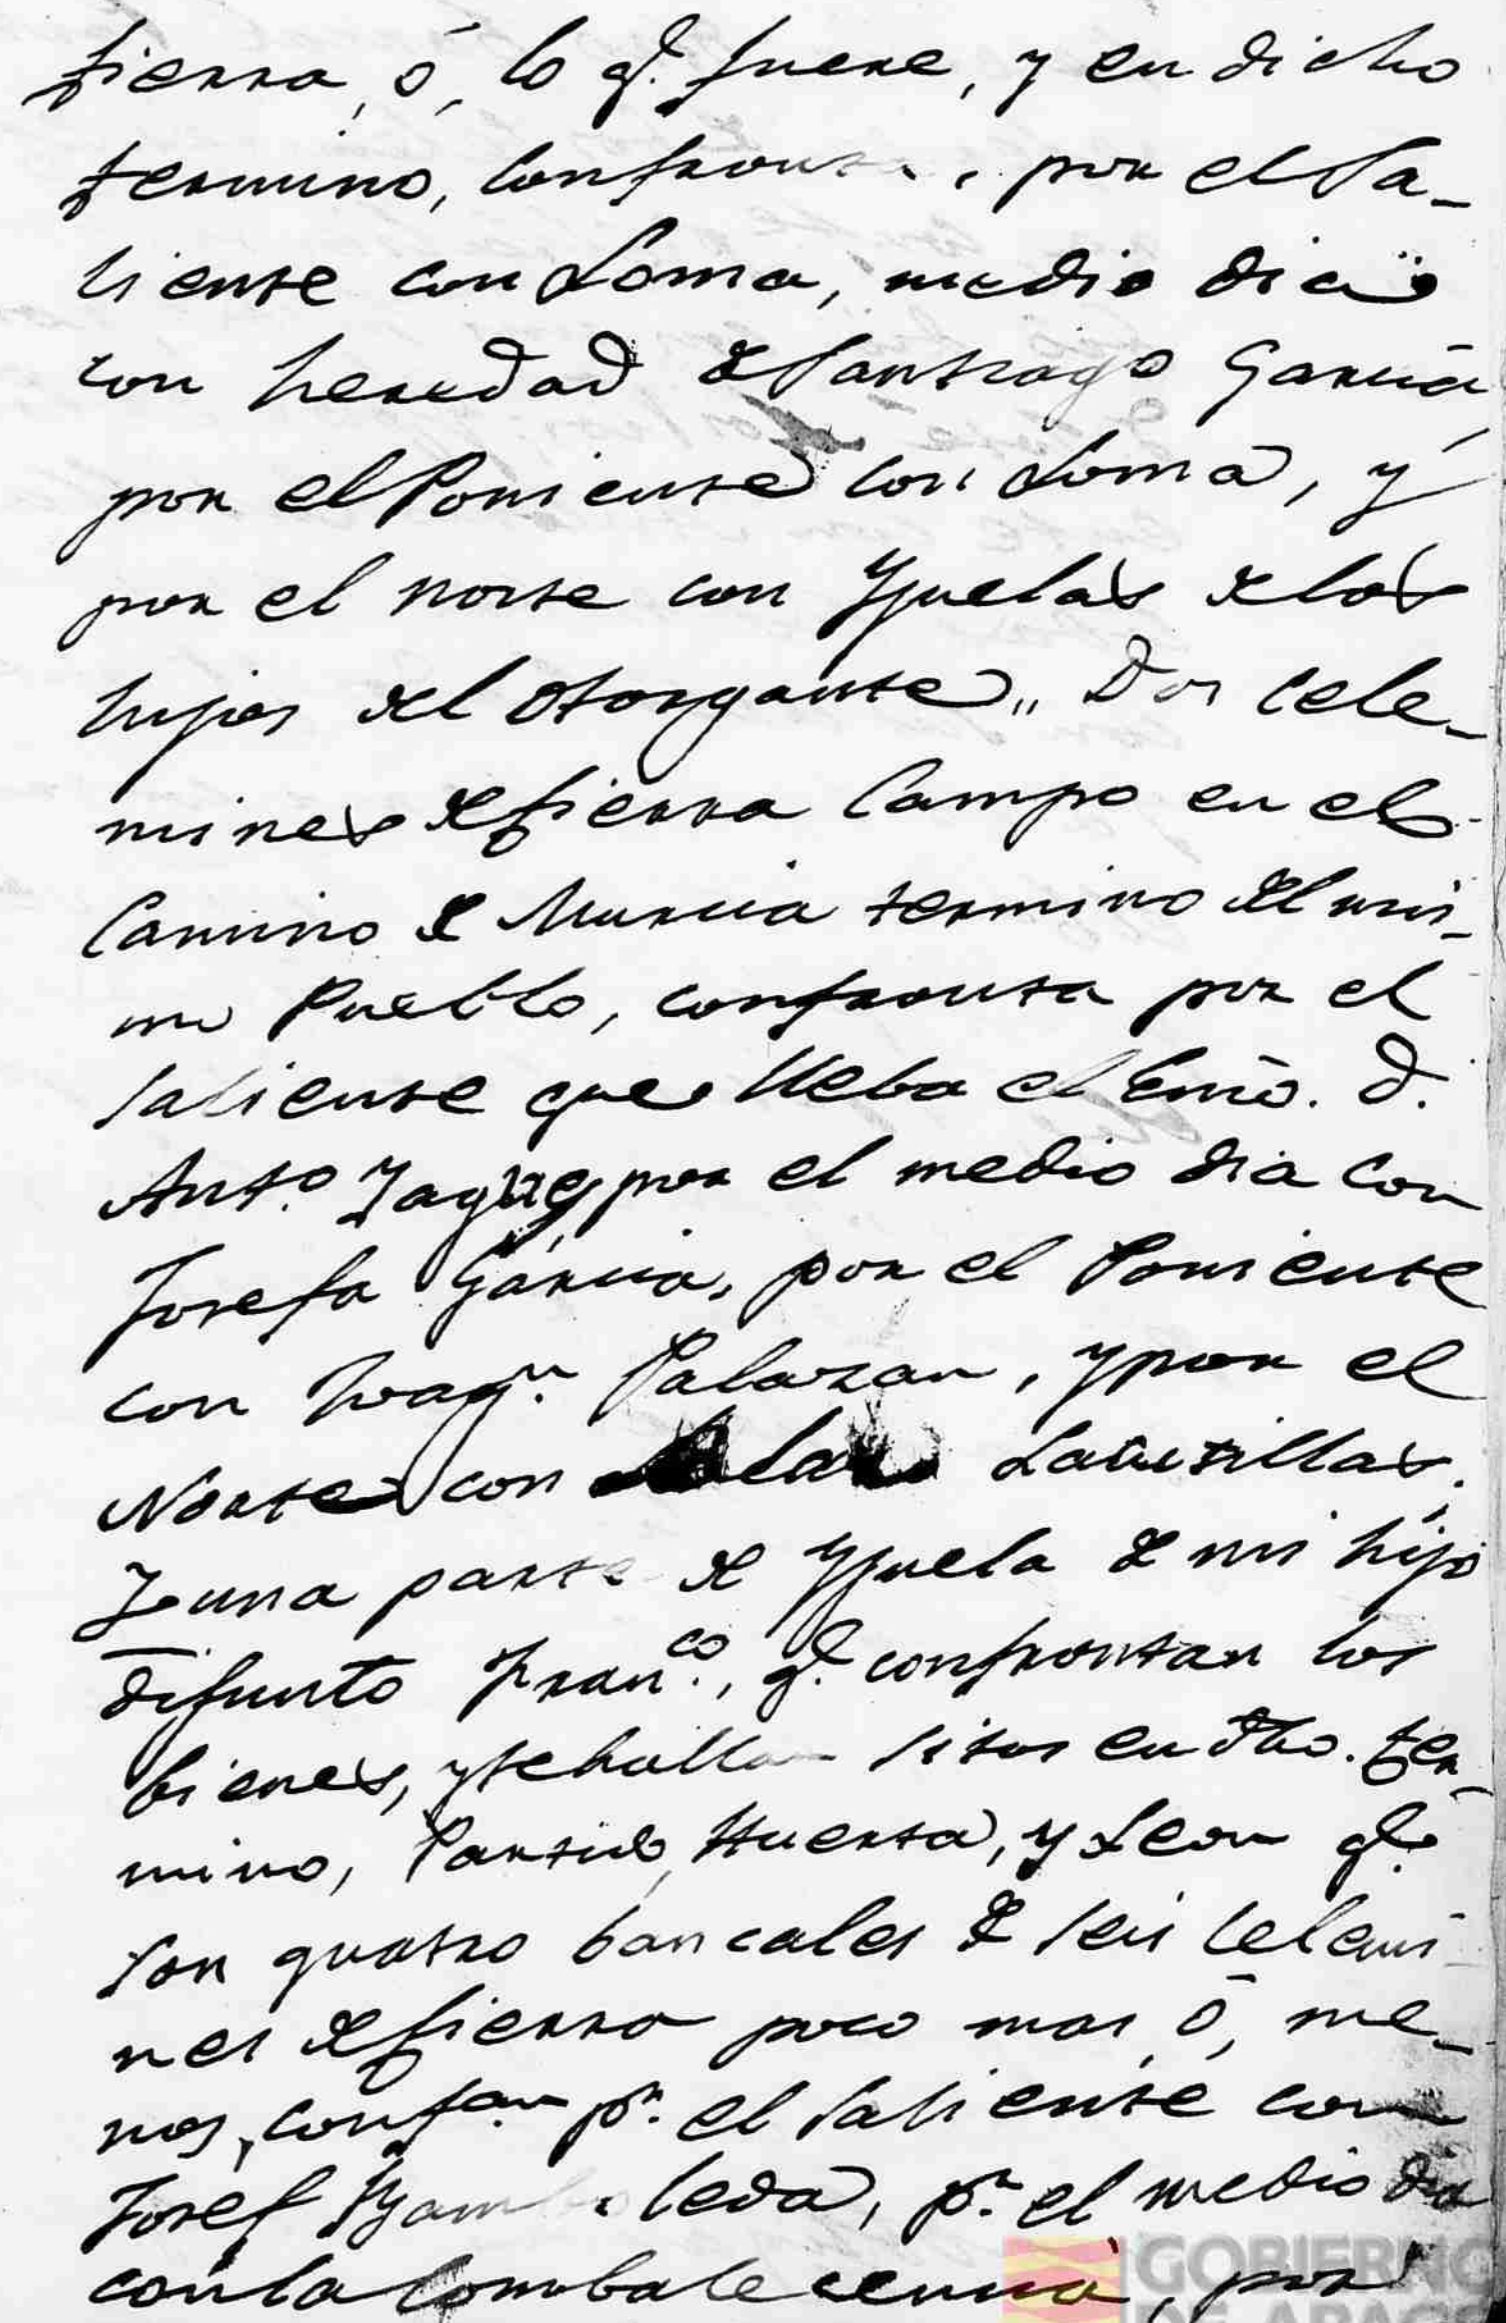 tierra, ó, lo q.e fuere, y en dicho
termino, confronta, por el Sa-
liente con Loma, medio dia
con heredad de Santiago Garcia,
por el Poniente con Loma, y
por el norte con Yjuelas de los
hijos del otorgante,, Dos cele-
mines de tierra Campo en el
Camino de Murcia termino del mis-
mo Pueblo, confronta por el
saliente que lleba el Exmō. D.
Ant.o Yague, por el medio dia con
Josefa Garcia, por el Poniente
con Joaq.n Palazan, y por el
Norte con las
Y una parte de Yjuela de mi hijo
difunto Fran.co, q.e confrontan los
bienes, y se hallan sitos en dho. ter-
mino, Partido, Huerta, y Leon q.e
son quatro bancales de seis celemi-
nes de tierra poco mas, ó, me-
nos, conf.an p.r el saliente con
Josef leda, p.r el medio dia
con la, por
GOBIERNO
DE ARAGO